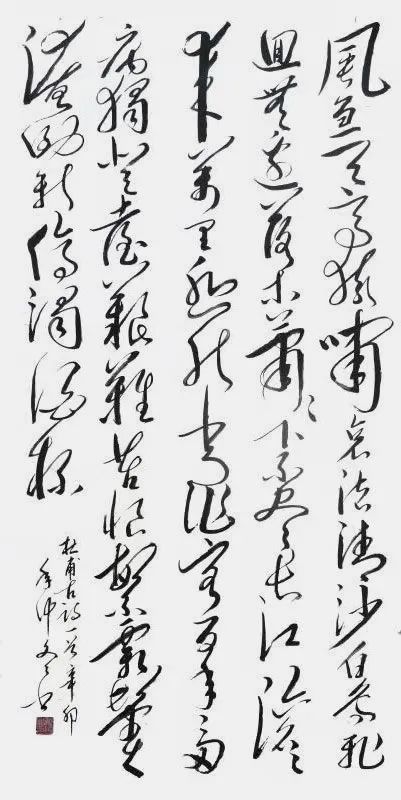 風急天高猿嘯哀渚清沙白鳥飛
迴無邊落木蕭〻下不盡長江滾〻
來萬里悲秋常作客百年多
病獨登臺艱難苦恨繁霜鬢
潦倒新停濁酒杯
杜甫古詩一首辛卯
年仲